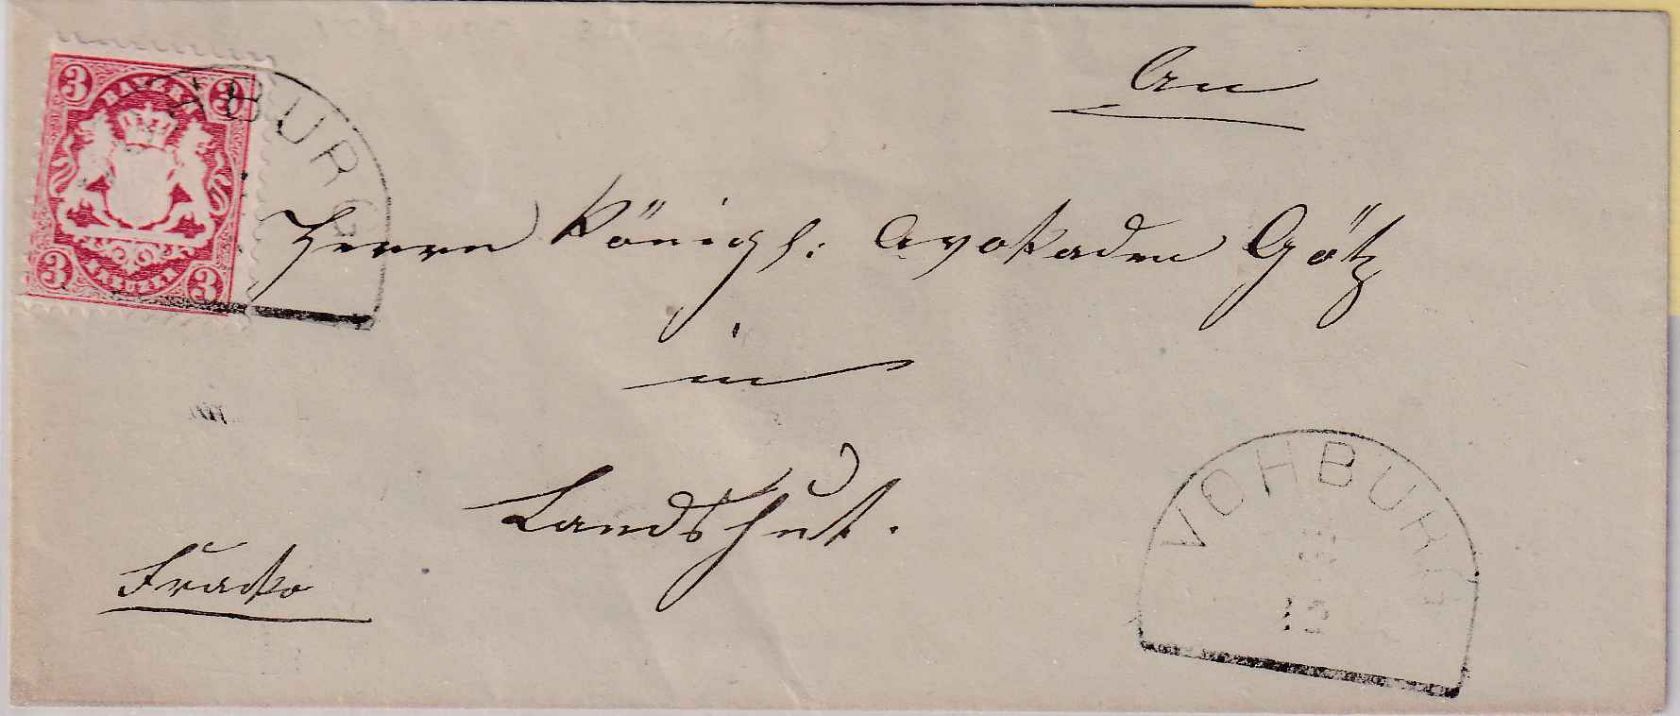 3 3
BAYERN
KREUZER
3 3
BURG
An
Herrn Königl: Avokaden Götz
in
Landshut.
Franko
VOHBURG